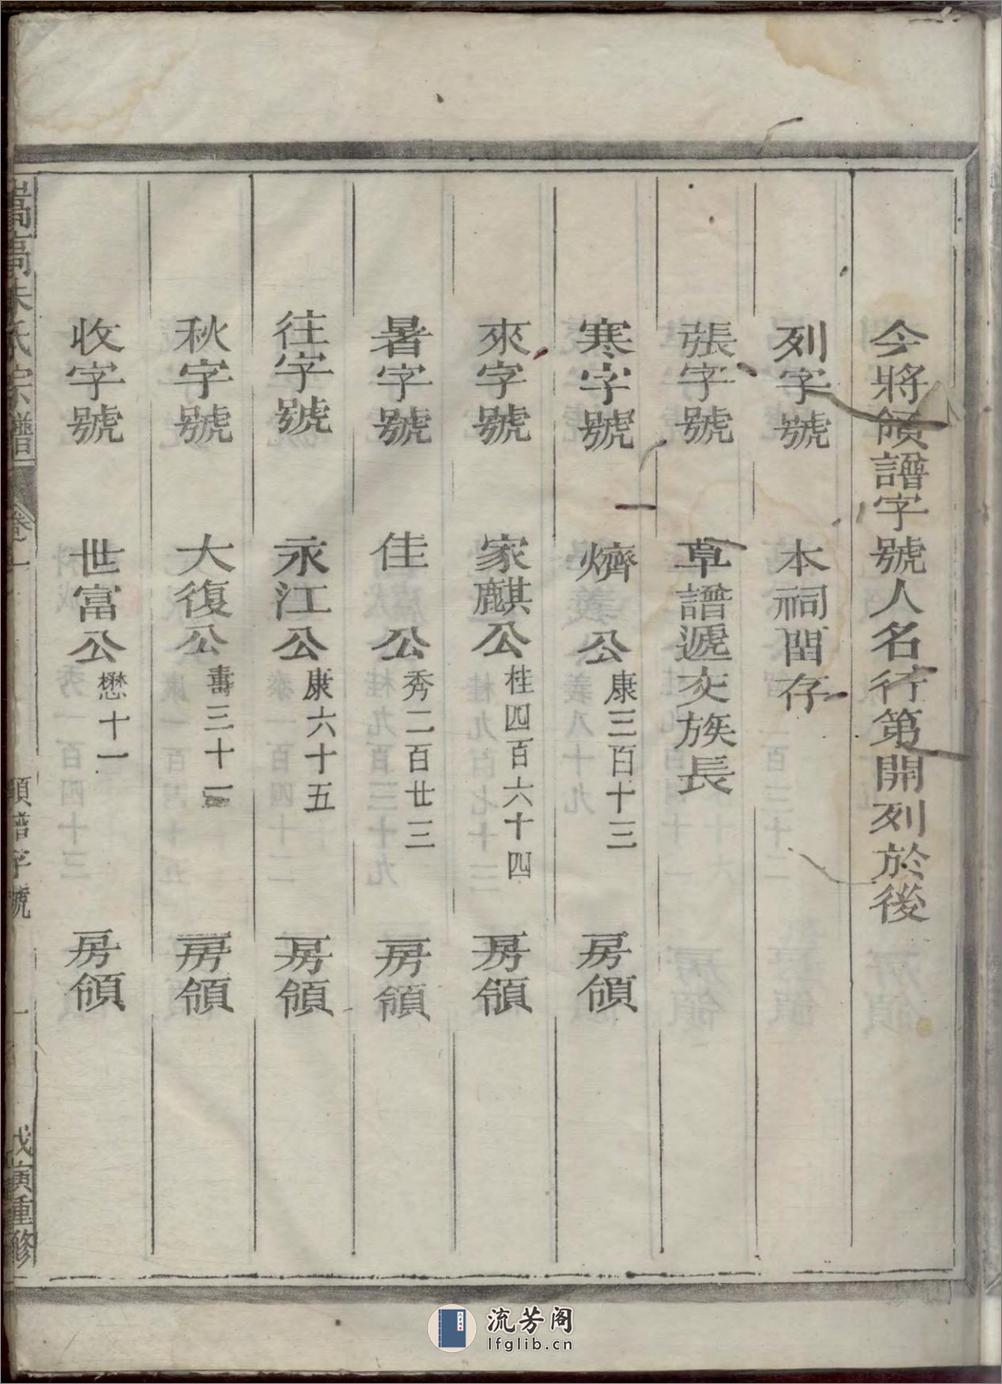 今將領譜字號人名行第開列於後
列字號 本祠畱存
張字號 草譜遞交族長
寒字號 燫公 康三百十三 房領
來字號 家麒公 桂四百六十四 房領
暑字號 佳公 秀二百廿三 房領
往字號 永江公 康六十五 房領
秋字號 大復公 壽三十二 房領
收字號 世富公 懋十一 房領
嵩高朱氏宗譜 卷一 領譜字號 一 戊寅重修
流芳阁
lfglib.cn